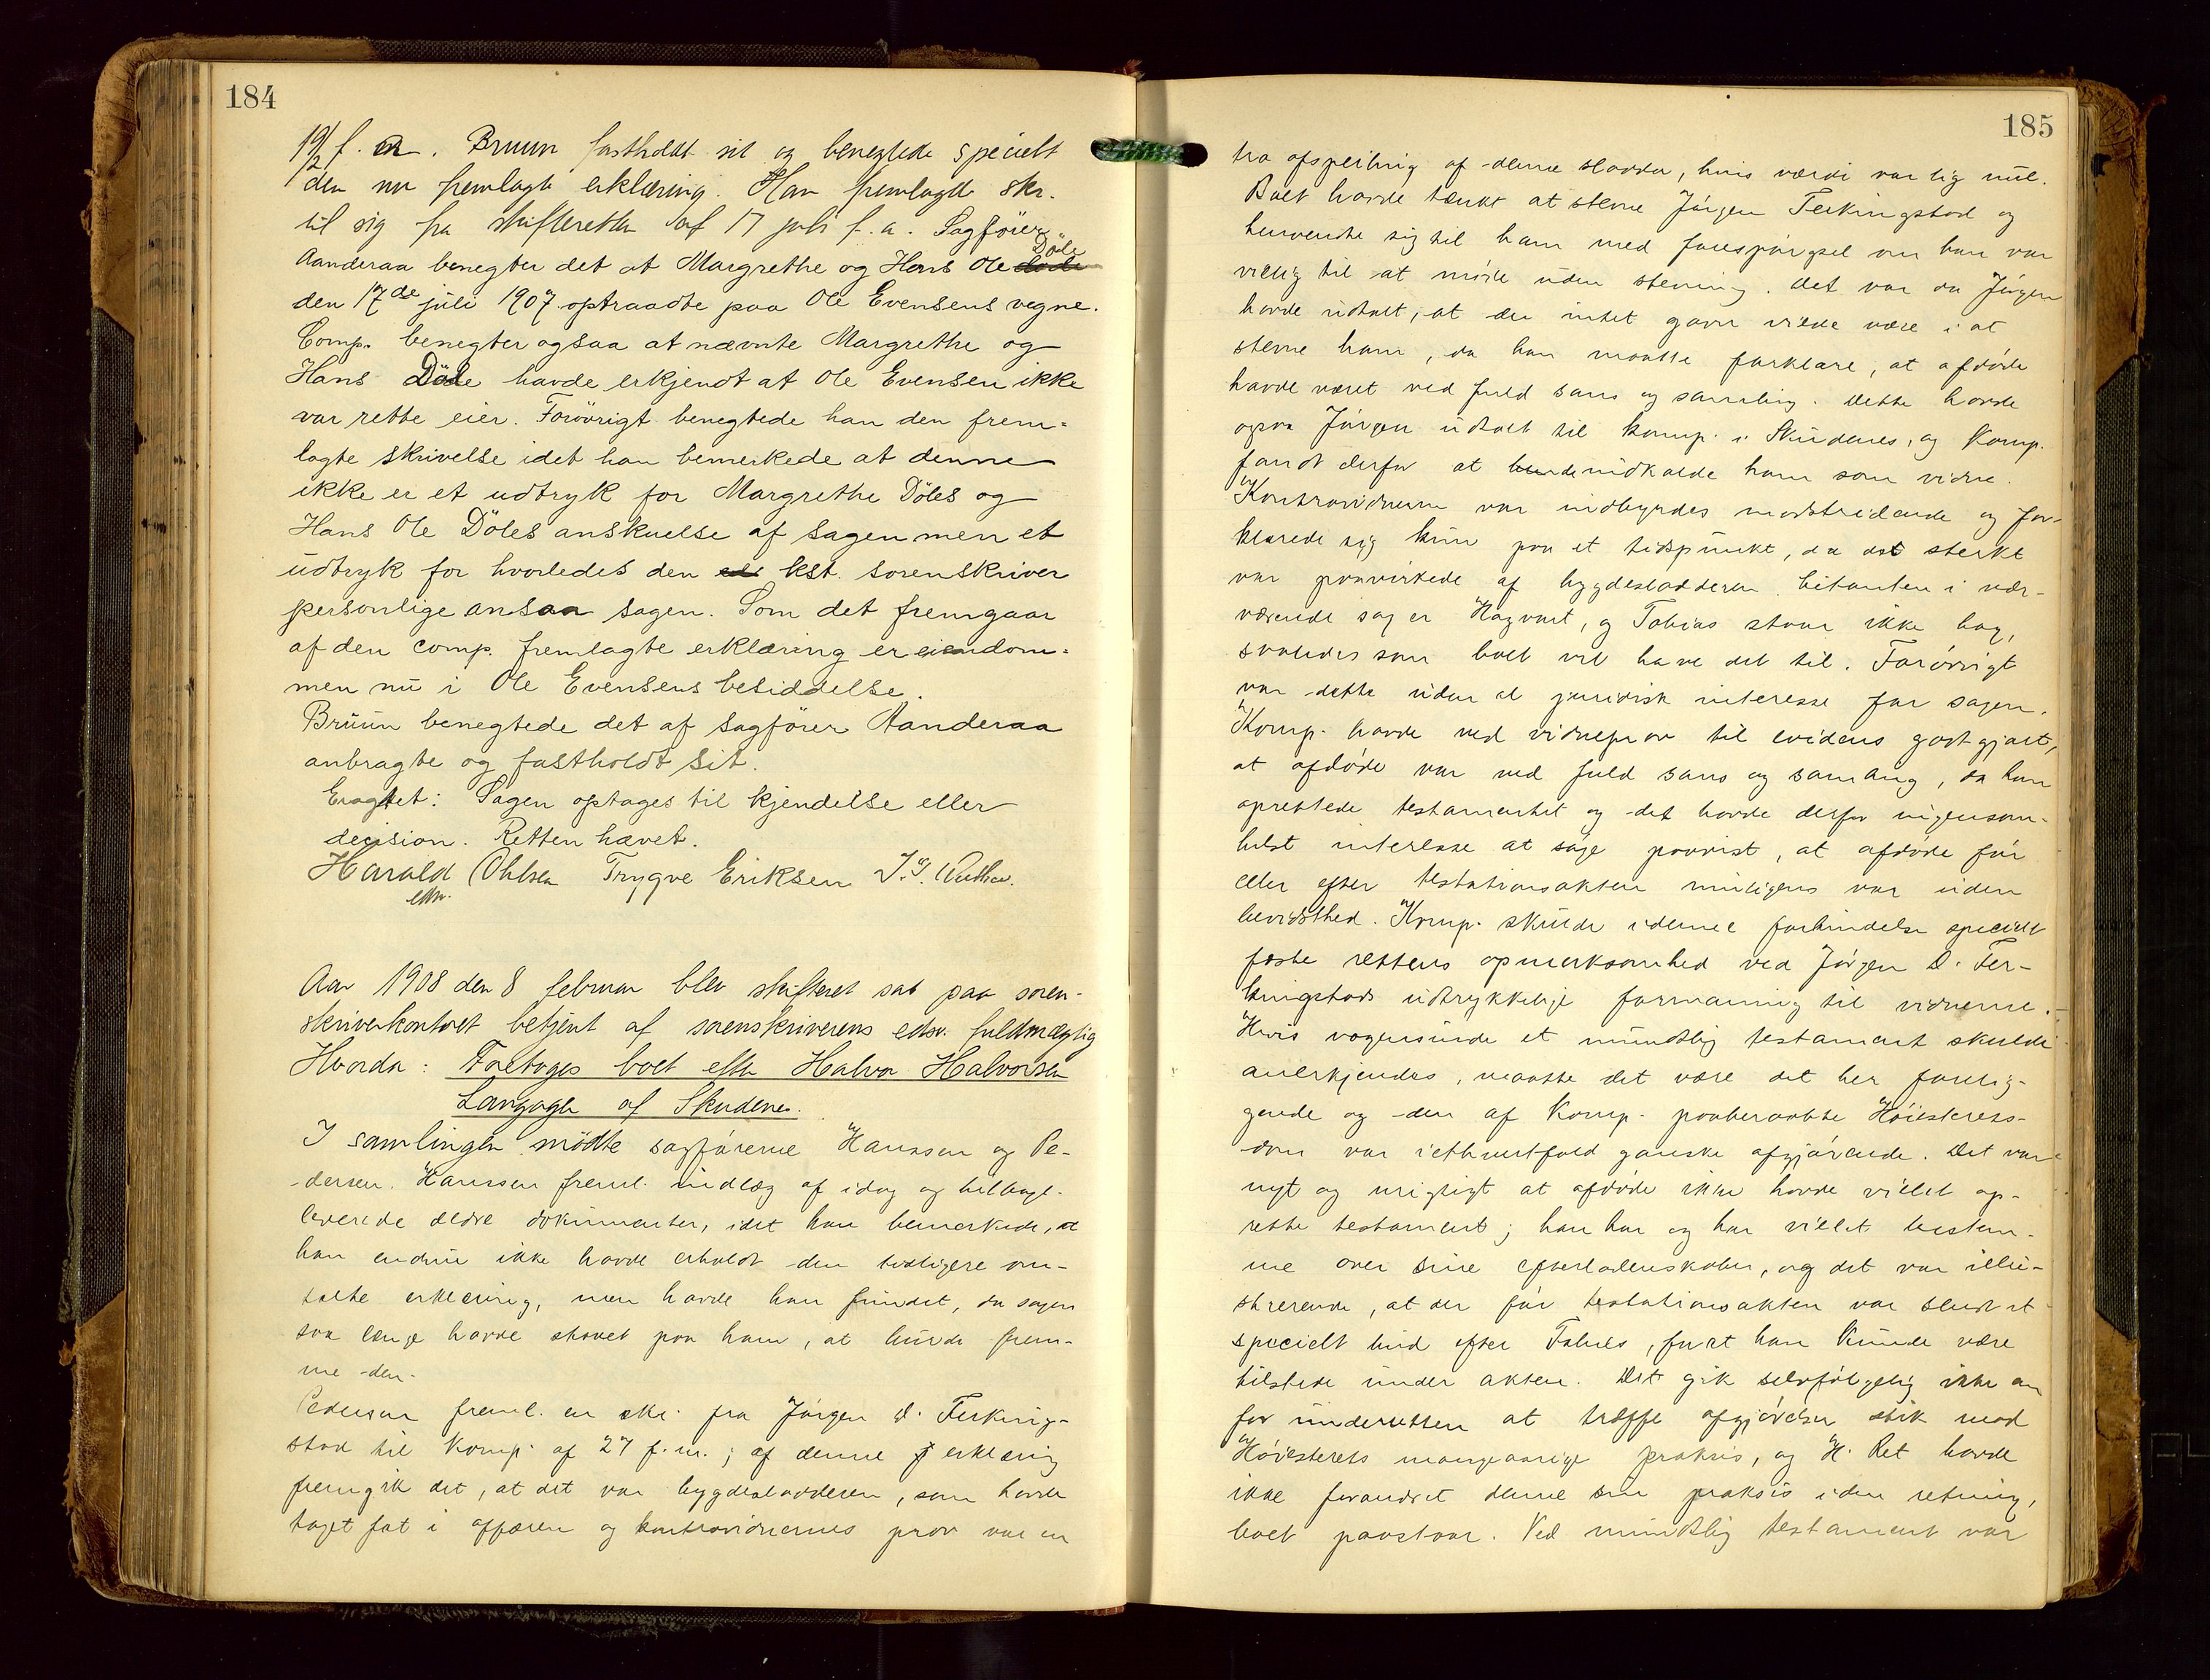 184
19/2 f. m. Bruun fastholdt sit og benegtede specielt
den nu fremlagte erklæring. Han fremlagde skr.
til sig fra skifteretten af 17 juli f. a. Sagfører
Aanderaa benegter det at Margrethe og Hans Ole döde Döle
den 17de juli 1907 optraadte paa Ole Evensens vegne.
Comp. benegter ogsaa at nævnte Margrethe og
Hans Döle havde erkjendt at Ole Evensen ikke
var rette eier. Forövrigt benegtede han den frem-
lagte skrivelse idet han bemerkede at denne
ikke er et udtryk for Margrethe Döles og
Hans Ole Döles anskuelse af sagen men et
udtryk for hvorledes den kst. sorenskriver
personlige ansaa sagen. Som det fremgaar
af den comp. fremlagte erklæring er eiendom-
men nu i Ole Evensens besiddelse.
Bruun benegtede det af sagförer Aanderaa
anbragte og fastholdt sit.
Eragtet: Sagen optages til kjendelse eller
decision. Retten hævet.
Harald Ohlsen Trygve Eriksen
Aar 1908 den 8 februar blev skifteret sat paa soren-
skriverkontoret betjent af sorenskriverens edsv. fuldmægtig
Hvorda: Foretoges boet efter Halvor Halvorsen
Langager af Skudenes.
I samlingen mödte sagførerne Hanssen og Pe-
dersen. Hanssen freml. indlæg af idag og tilbage-
leverede ældre dokumenter, idet han bemerkede, at
han endnu ikke havde erholdt den tidligere om-
talte erklæring, men havde han fundet, da sagen
saa længe havde staaet paa ham, at burde frem-
me den.
Pedersen freml. en skr. fra Jørgen D. Ferking-
stad til Komp. af 27 f. m.; af denne erklæring
fremgik det, at det var bygdesladderen, som havde
taget fat i affæren og kontravidnernes prov var en
185
tro afspeiling af denne sladder, hvis værdi var lig nul.
Boet havde tænkt at stevne Jørgen Ferkingstad og
henvendte sig til ham med forespørgsel om han var
villig til at møde uden stevning. Det var da Jørgen
havde udtalt, at der intet gavn vilde være i at
stevne ham, da han maatte forklare, at afdøde
havde været ved fuld sans og samling. Dette havde
ogsaa Jørgen udtalt til Komp. i Skudenes, og Komp.
fandt derfor at burde indkalde ham som vidne.
Kontravidnerne var indbyrdes modstridende og for-
klarede sig kun paa et tidspunkt, da det sterkt
var paavirkede af bygdesladderen. Citanten i nær-
værende sag er Hagvart, og Tobias staar ikke bag,
saaledes som boet vil have det til. Forøvrigt
var dette uden al juridisk interesse for sagen.
Komp. havde ved vidneprov til evidens godtgjort,
at afdøde var ved fuld sans og samling, da han
oprettede testamentet og det havde derfor ingensom-
helst interesse at søge paavist, at afdøde før
eller efter testationsakten muligens var uden
bevidsthed. Komp. skulde i denne forbindelse specielt
fæste rettens opmerksomhed ved Jørgen D. Fer-
kingstads udtrykkelige formaning til vidnerne.
Hvis nogensinde et mundtlig testament skulde
anerkjendes, maatte det være det her forelig-
gende og den af Komp. paaberaabte Høiesterets-
dom var i ethvertfald ganske afgjørende. Det var
nyt og urigtigt at afdøde ikke havde villet op-
rette testament; han har og har villet bestem-
me over sine efterladenskaber, og det var illu-
strerende, at der før testationsakten var sendt et
specielt bud efter Tobias, for at han kunde være
tilstede under akten. Det gik selvfølgelig ikke an
for underretten at træffe afgjørelser stik mod
Høiesterets mangeaarige praksis, og H. Ret havde
ikke forandret denne sin praksis i den retning,
boet paastaar. Ved mundtlig testament var